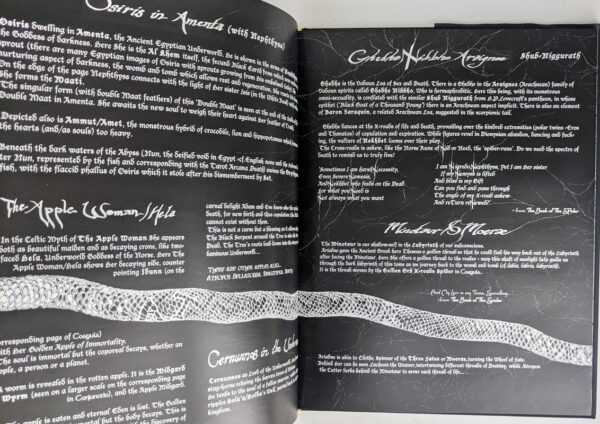 Osiris in Amenta (with Nephthys)
Osiris dwelling in Amenta, the Ancient Egyptian Underworld. He is shown in the
the Goddess of darkness. Here She is the Al Khem itself, the fecund Black Earth from which
sprout (there are many Egyptian images of Osiris with sprouts growing from
nurturing aspect of darkness, the womb and tomb which allows rest and regeneration. She
On the edge of the page Nephthys connects with the light of her sister Isis
She forms the Maati.
The singular form (with double Maat feathers) of this 'Double Maat' is seen at the end of the
Double Maat in Amenta. She awaits the new soul to weigh their heart against her feather of
Depicted also is Ammut/Amet, the monstrous hybrid of crocodile, lion and hippopotamus
the hearts (and/as souls) too heavy.
Beneath the dark waters of the Abyss (Nun, the deified void in Egypt
ter Nun, represented by the fish and corresponding with the Tarot Arcana Death
fish, with the flaccid phallus of Osiris which it stole after his Dismemberment by Set.
The Apple Woman/Hela
In the Celtic Myth of The Apple Woman She appears
both as beautiful maiden and as decaying crone, like two
faced Hela, Underworld Goddess of the Norse. Here The
Apple Woman/Hela shows Her decaying side, counter
pointing Idunn (on the
carnal delight Adam and Eve knew also the
death, for new birth and thus population
cannot exist without them.
This is not a curse but a blessing
The Black Serpent around the Tree is also the
Dead. The Tree's roots lead down into the
luminous Underworld...
These are other apples also...
Atropos Belladonna, Beautiful Death
corresponding page of Coagula)
with Her Golden Apple of Immortality.
The soul is immortal but the corporeal decays, whether an
apple, a person or a planet.
A worm is revealed in the rotten apple. It is the Midgard
Wyrm (seen on a larger scale on the corresponding page
in Conjunctio), and the Apple Midgard.
The apple is eaten and eternal Eden is lost. The Golden
immortal but the body decays. This is
the discovery of
Cernunnos in the
Cernunnos as Lord of the Underworld
stag-horns echoing the barren
the tombs to the soul of a fallen
cripple Hela's/Hella's
kingdom.
Ghedhe Nibbho Araignee
Shub-Niggurath
Ghedhe is the Vodoun Loa of Sex and Death. There is a Ghedhe in the Araignee (Arachnean) family of
Vodoun spirits called Ghedhe Nibbho. Who is hermaphroditic, here this being, with its monstrous
omni-sexuality, is conflated with the similar Shub Niggurath from H.P.Lovecraft's pantheon, in whose
epithet ('Black Goat of a Thousand Young') there is an Arachnean aspect implicit. There is also an element
of Baron Zaraguin, a related Arachnean Loa, suggested in the scorpionic tail.
Ghedhe dances at the X-roads of life and death, prevailing over the kindred extremities (polar twins -Eros
and Thanatos) of copulation and expiration. While figures revel in Dionysian abandon, dancing and fuck-
ing, the vulture of Nekhbet looms over their play.
The Cross-roads is askew, like the Norse Rune of Nyd or Need, the 'spider-rune'. Do we need the spectre of
death to remind us to truly live?
Sometimes I am harsh Necessity,
Even Severe Nemesis,
And Nekhbet who feeds on the Dead
For what you need is
Not always what you want
I am Nigredo, Nephthys, Yet I am Her sister
If my Nemyss is lifted
And bliss is my Gift
Can you find and pass through
The angle of my X-road askew
And re-Turn reNewed?
- from The Book of The Spider
Minotaur & Moerae
The Minotaur is our shadow-self in the Labyrinth of our subconscious.
Ariadne gave the Ancient Greek hero Theseus a golden thread so that he could find his way back out of the Labyrinth
after facing the Minotaur. Here She offers a golden thread to the reader - may this shaft of sunlight help guide us
through the dark labyrinth of this tome as we journey back to the womb and tomb (cf labia, labrys, labyrinth).
It is the thread wove by the Golden Orb X-roads Spider in Coagula.
- from The Book of The Spider
Ariadne is akin to Clotho, Spinner of the Three Fates or Moerae, turning the Wheel of Fate.
Behind her can be seen Lachesis the Weaver, intertwining different threads of Destiny, while Atropos
the Cutter lurks behind the Minotaur to sever each thread of life...